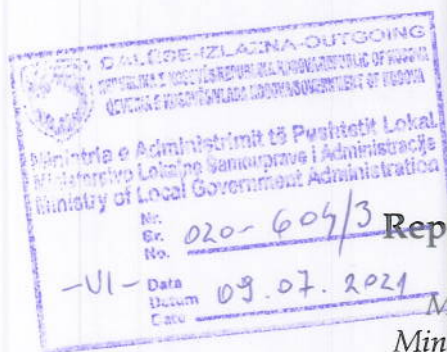 DALËSE-IZLAZNA-OUTGOING
REPUBLIKA E KOSOVËS/REPUBLIKA KOSOVA/REPUBLIC OF KOSOVA
QEVERIA E KOSOVËS/VLADA KOSOVA/GOVERNMENT OF KOSOVA
Ministria e Administrimit të Pushtetit Lokal
Ministarstvo Lokalne Samouprave i Administracije
Ministry of Local Government Administration
Nr.
Br.
No. 020-604/3
Rep
-VI-
Data
Datum
Date 09.07.2021
M
Min